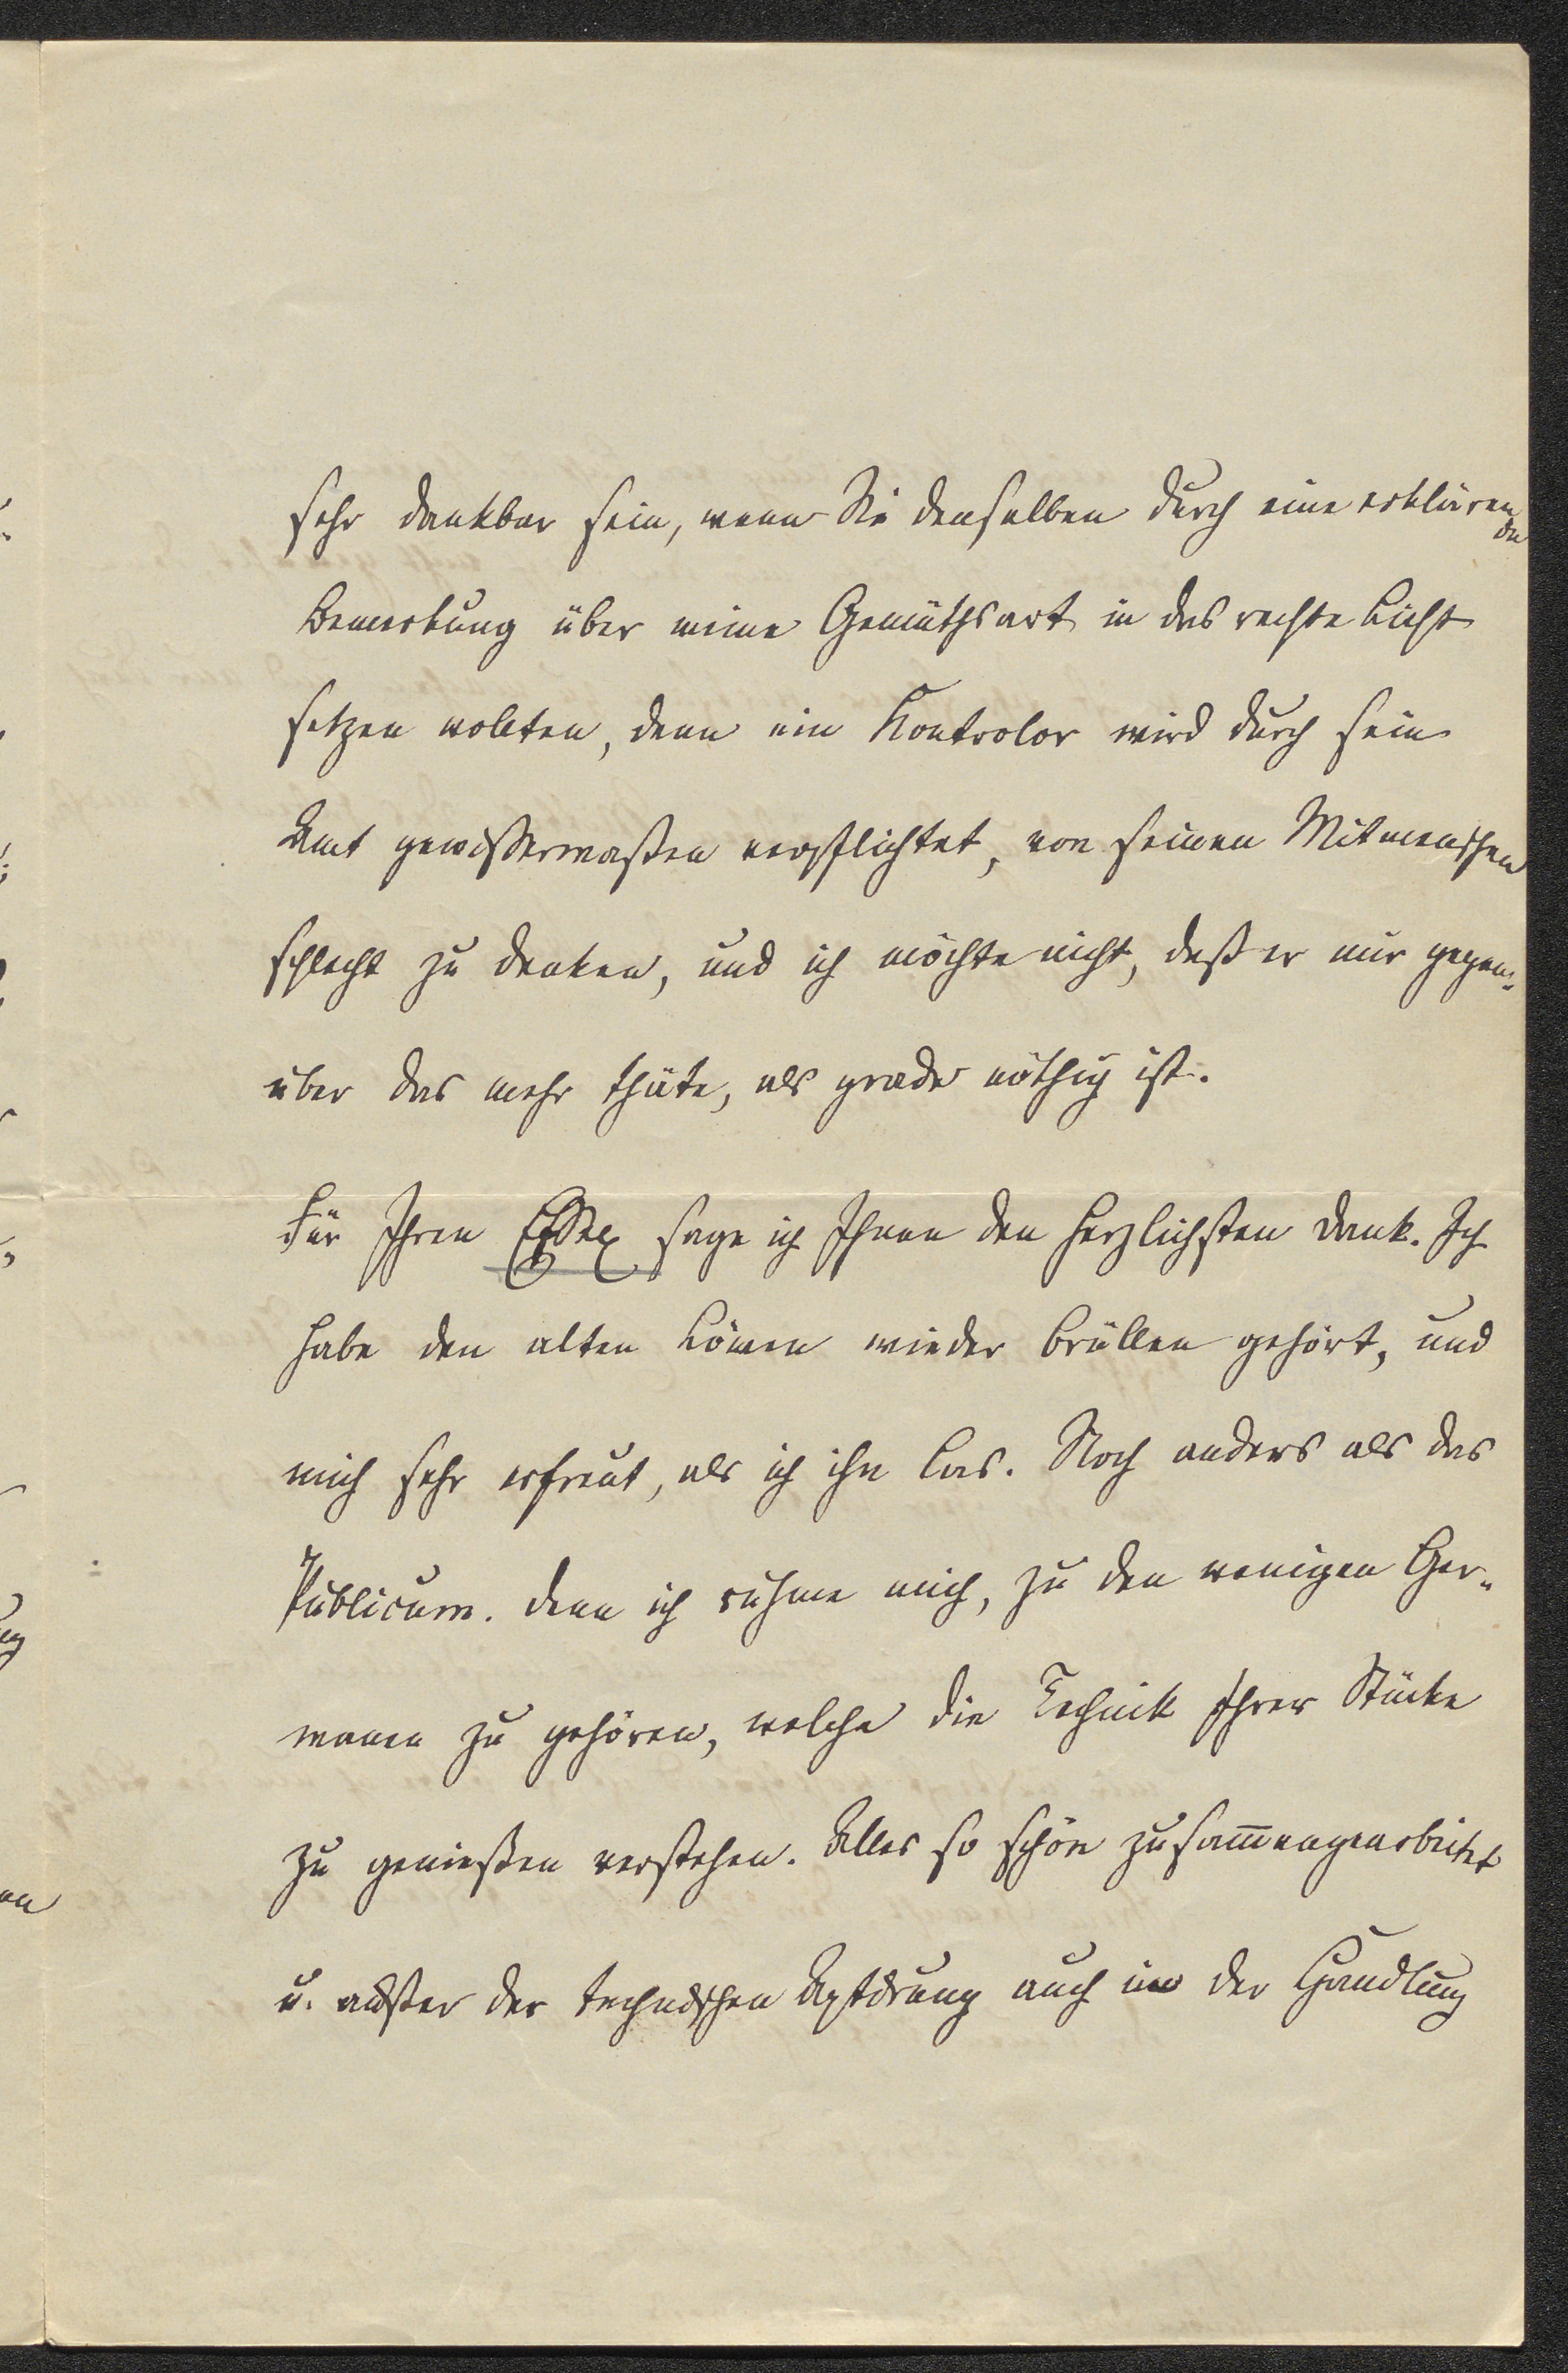 sehr dankbar sein, wenn Sie denselben durch eine erklärende
Bemerkung über meine Gemüthsart in das rechte Licht
setzen wollten, denn ein Kontrolor wird durch sein
Amt gewissermaßen verpflichtet, von seinen Mitmenschen
schlecht zu denken, und ich möchte nicht, daß er mir gegen-
über das mehr thäte, als grade nöthig ist.
Für Ihren Essex sage ich Ihnen den herzlichsten Dank. Ich
habe den alten Löwen wieder brüllen gehört, und
mich sehr erfreut, als ich ihn las. Noch anders als das
Publicum. Denn ich rühme mich, zu den wenigen Ger-
manen zu gehören, welche die Technik Ihrer Stücke
zu genießen verstehen. Alles so schön zusam̅engearbeitet
u. außer der technischen auch in der Handlung